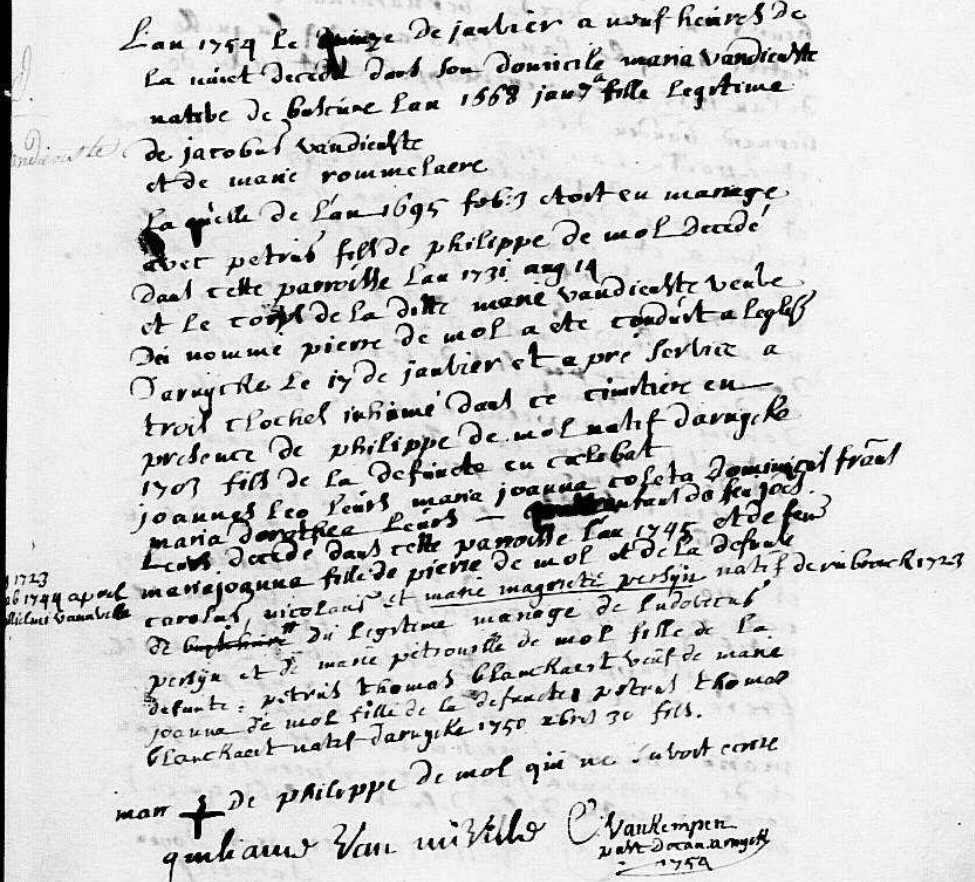 L'an 1754 le quinze de janvier a neuf heures de
la nuiet decedé dans son domicile maria vandieuste
natibe de buscure lan 1668 jan 7ᵃ fille legitime
de jacobus vandieuste
et de marie rommelaere
La quelle de l'an 1695 feb: 3 etoit en mariage
avec petrus fils de philippe de mol decedé
dans cette parroisse Lan 1731 aug 14
et Le corps de la ditte marie vandieuste veube
dei nommé pierre de mol a eté conduit a leglis
Darnycke Le 17 de janbier et a pré service a
trois clochel inhumé dans ce cimitiere en
presence de philippe de mol natif darnycke
1703 fils de la defuncte en cœlebat
joannes Leo Leurs maria joanna coleta Dominicus frans
maria dorothea Leurs — enfans de feu joes
Leurs decedé dans cette paroisse lan 1745 et de feu
marie joanna fille de pierre de mol et de la defunte
1723
1744 april
vanuville
carolus, nicolaus et marie magriete persyn natif de rubrouck 1723
de du Legitime mariage de Ludovicus
persyn et de marie petronille de mol fille de La
defunte: petrus thomas blanckaert veuf de marie
joanna de mol fille de la defuncte petrus thomas
blanckaert natif darnycke 1750 xbris 30 fils.
mart + de philippe de mol qui ne savoit ecrire
guiliaume Van uuville
C Vankempen
past decan arnyck
1754